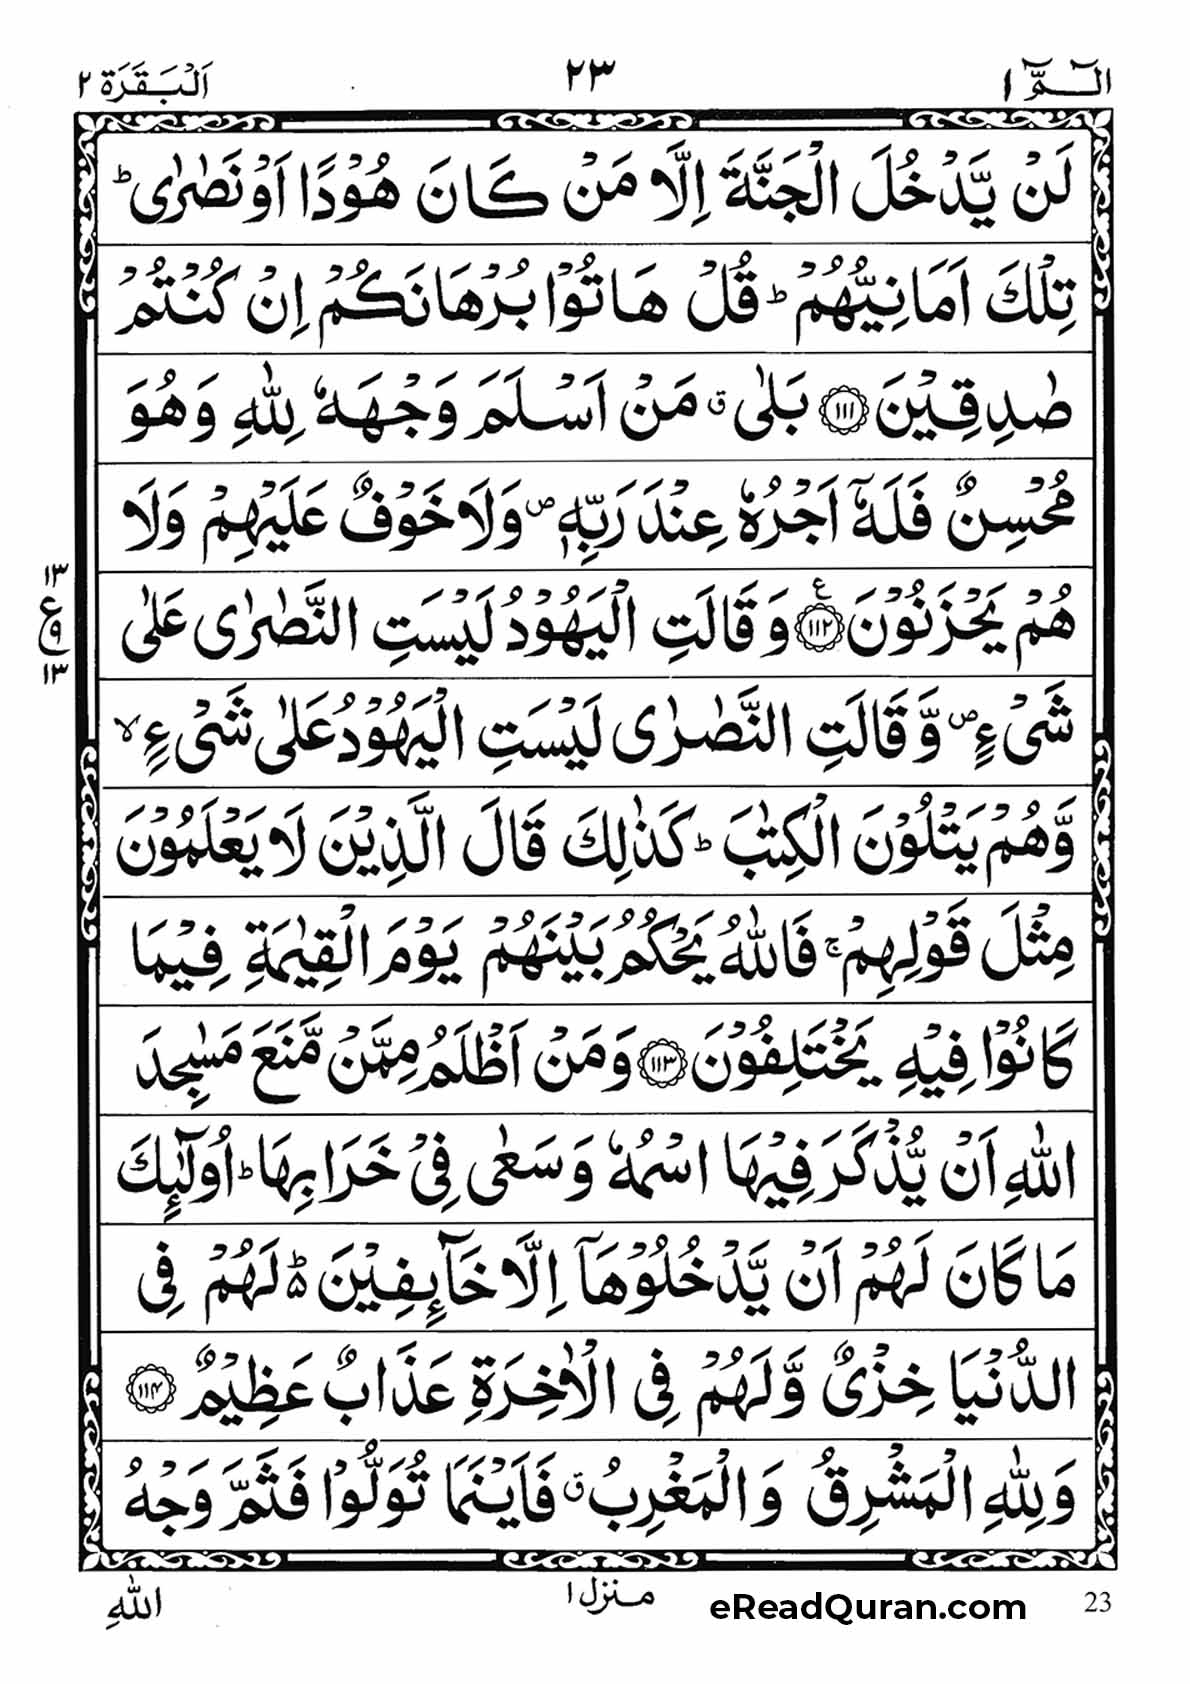 الٓمّٓ ١ ٢٣ اَلْبَقَرَة ٢
لَنْ يَّدْخُلَ الْجَنَّةَ اِلَّا مَنْ كَانَ هُوْدًا اَوْ نَصٰرٰى ؕ
تِلْكَ اَمَانِيُّهُمْ ؕ قُلْ هَاتُوْا بُرْهَانَكُمْ اِنْ كُنْتُمْ
صٰدِقِيْنَ ۝۱۱۱ بَلٰى ۗ مَنْ اَسْلَمَ وَجْهَهٗ لِلّٰهِ وَهُوَ
مُحْسِنٌ فَلَهٗٓ اَجْرُهٗ عِنْدَ رَبِّهٖ ۪ وَلَا خَوْفٌ عَلَيْهِمْ وَلَا
هُمْ يَحْزَنُوْنَ ۝۱۱۲ ع وَقَالَتِ الْيَهُوْدُ لَيْسَتِ النَّصٰرٰى عَلٰى
١٣ ع ٩ ١٣
شَىْءٍ ۪ وَّقَالَتِ النَّصٰرٰى لَيْسَتِ الْيَهُوْدُ عَلٰى شَىْءٍ ۙ
وَّهُمْ يَتْلُوْنَ الْكِتٰبَ ؕ كَذٰلِكَ قَالَ الَّذِيْنَ لَا يَعْلَمُوْنَ
مِثْلَ قَوْلِهِمْ ۚ فَاللّٰهُ يَحْكُمُ بَيْنَهُمْ يَوْمَ الْقِيٰمَةِ فِيْمَا
كَانُوْا فِيْهِ يَخْتَلِفُوْنَ ۝۱۱۳ وَمَنْ اَظْلَمُ مِمَّنْ مَّنَعَ مَسٰجِدَ
اللّٰهِ اَنْ يُّذْكَرَ فِيْهَا اسْمُهٗ وَسَعٰى فِىْ خَرَابِهَا ؕ اُولٰٓئِكَ
مَا كَانَ لَهُمْ اَنْ يَّدْخُلُوْهَآ اِلَّا خَآئِفِيْنَ ؕ۬ لَهُمْ فِى
الدُّنْيَا خِزْىٌ وَّلَهُمْ فِى الْاٰخِرَةِ عَذَابٌ عَظِيْمٌ ۝۱۱۴
وَلِلّٰهِ الْمَشْرِقُ وَالْمَغْرِبُ ۗ فَاَيْنَمَا تُوَلُّوْا فَثَمَّ وَجْهُ
اللّٰهِ منزل ١ eReadQuran.com 23